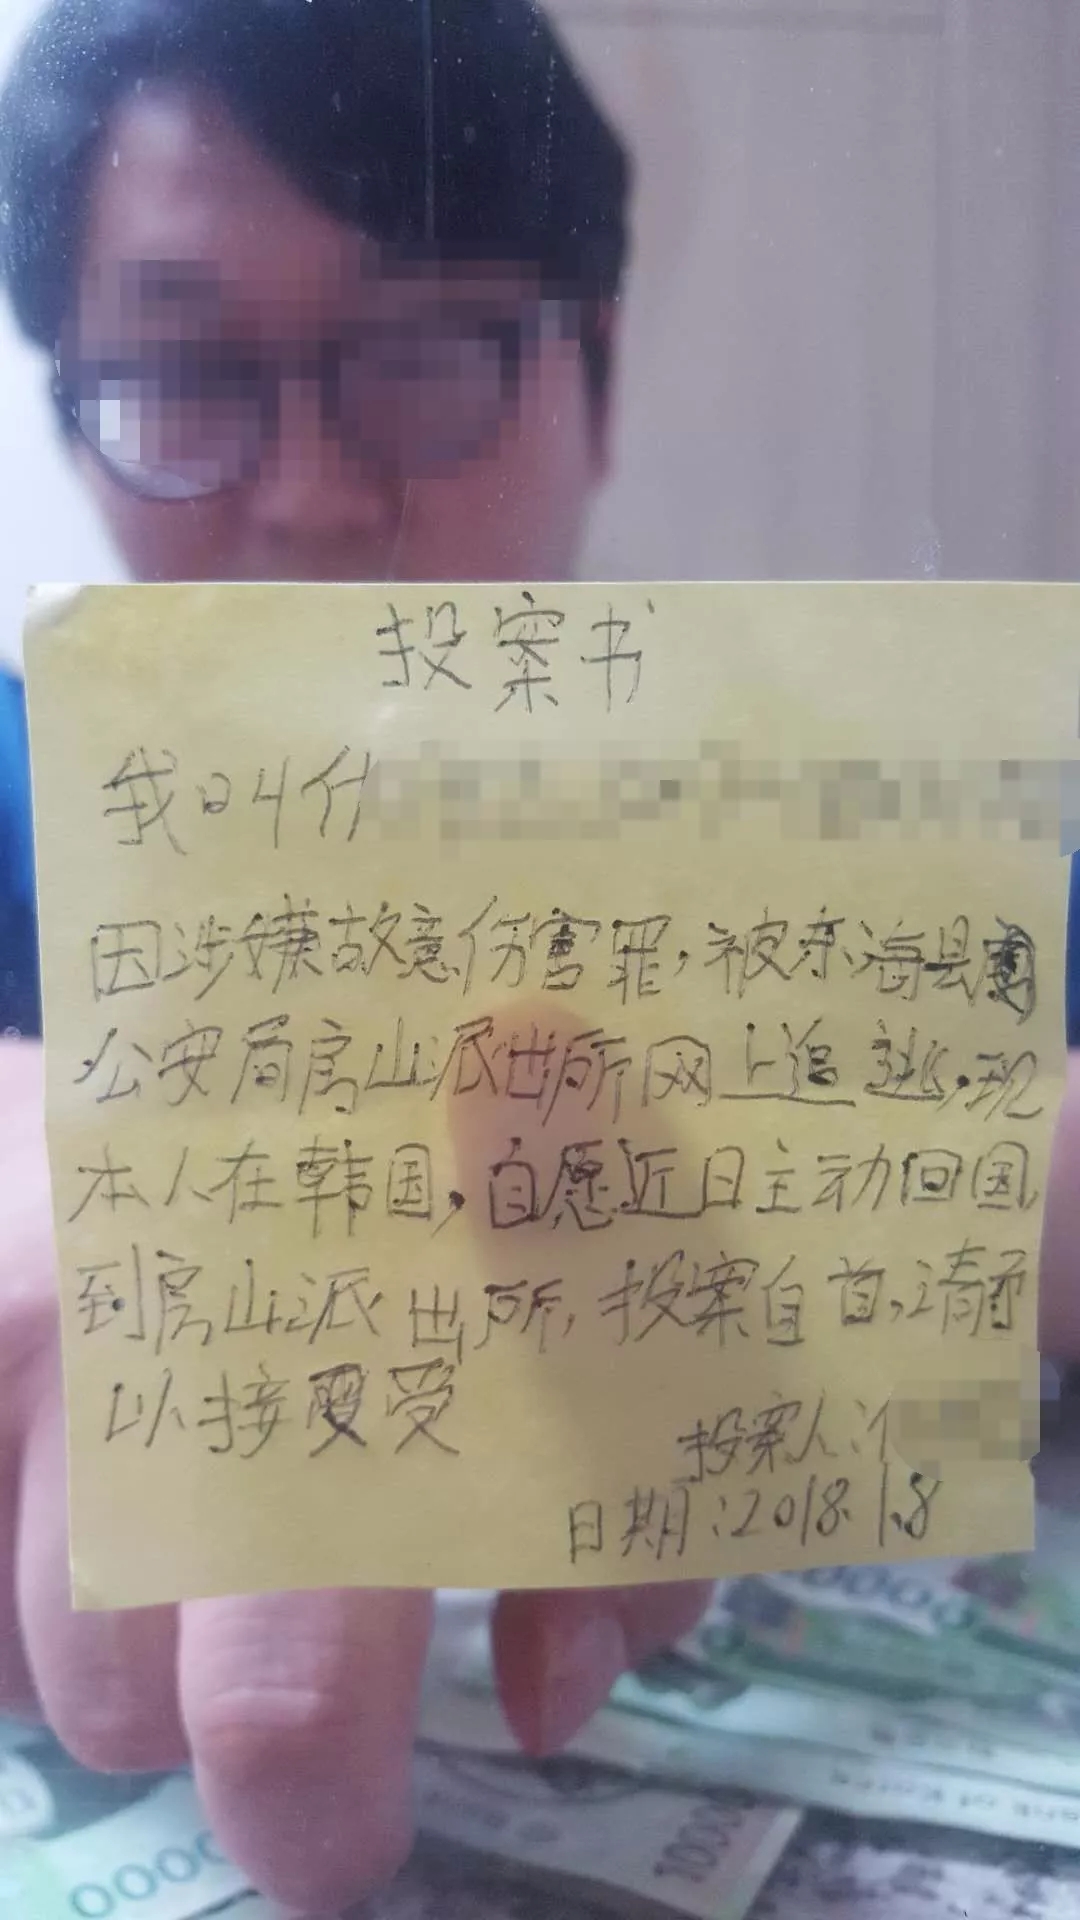 投案书
我叫什
因涉嫌故意伤害罪,被东海县
公安局房山派出所网上追逃,现
本人在韩国,自愿近日主动回国,
到房山派出所,投案自首,请予
以接受
投案人:
日期:2018.1.8
0000
Bank of Korea
10000
0000